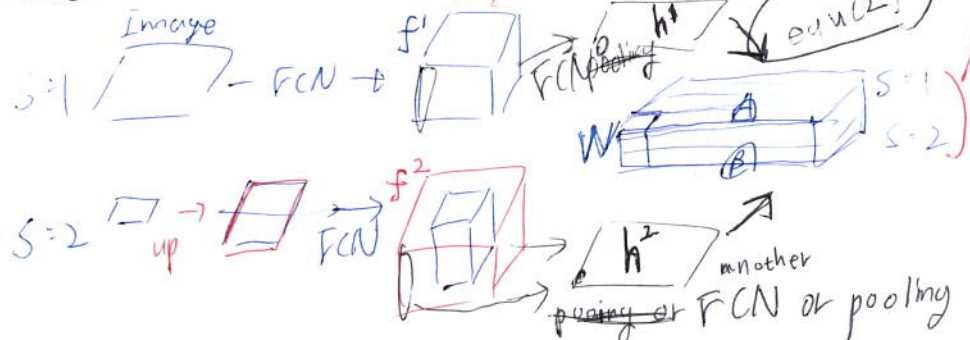 Image
S=1
FCN
f¹
FCN pooling
h¹
equ(2)
W
A
B
S=1
S=2
S=2
up
FCN
f²
h²
another
pooing or FCN or pooling